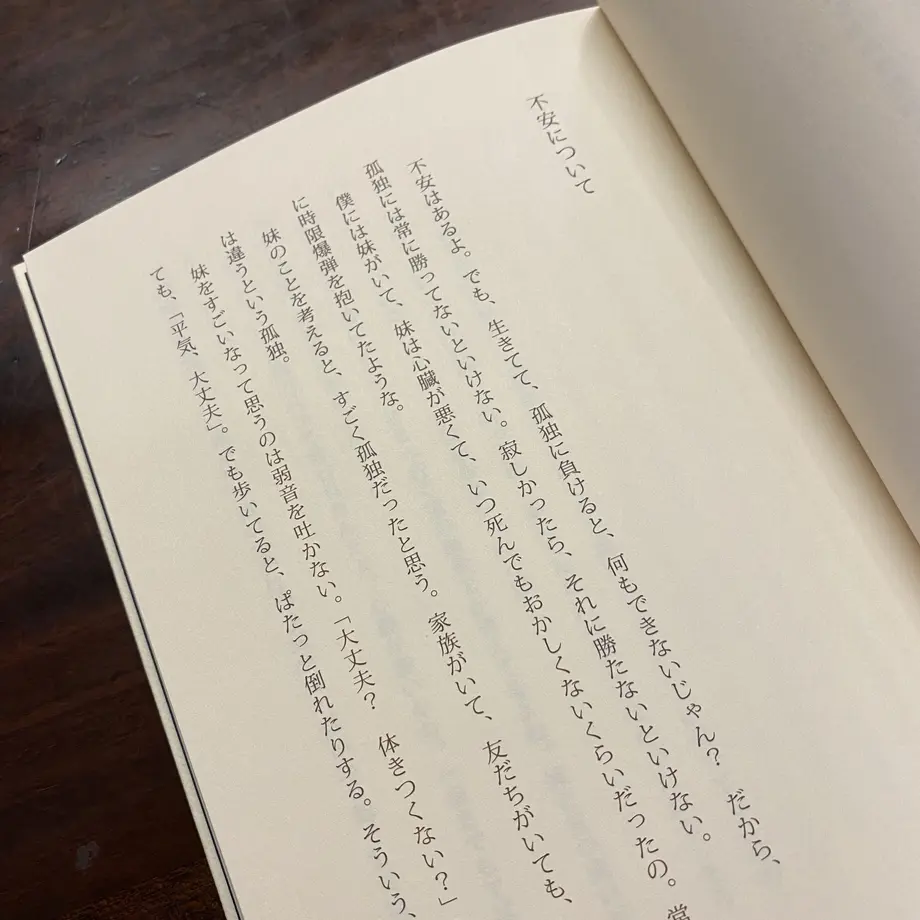 不安について
不安はあるよ。でも、生きてて、孤独に負けると、何もできないじゃん? だから、
孤独には常に勝ってないといけない。寂しかったら、それに勝たないといけない。
僕には妹がいて、妹は心臓が悪くて、いつ死んでもおかしくないくらいだったの。常
に時限爆弾を抱いてたような。
妹のことを考えると、すごく孤独だったと思う。家族がいて、友だちがいても、
は違うという孤独。
妹をすごいなって思うのは弱音を吐かない。「大丈夫? 体きつくない?」
ても、「平気、大丈夫」。でも歩いてると、ぱたっと倒れたりする。そういう、